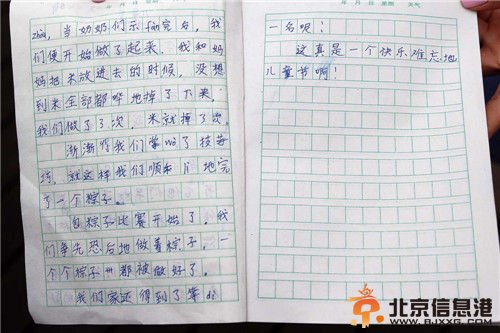 zhà，当奶奶们示fàn完后，我
们便开始做了起来。我和妈
妈把米放进去的时候，没想
到米全部都哗地掉了下来，
我们做了3次，米就掉了3次。
渐渐得我们掌wò了技
巧，就这样我们顺利 地完
了一个粽子。
包粽子比赛开始了，我
们争先恐后地做着粽子，一
个个粽子 都被做好了。
我们家还得到了第
年 月 日 星期 天气
一名呢！
这真是一个快乐难忘地
儿童节啊！
北京信息港
RJXXG.COM